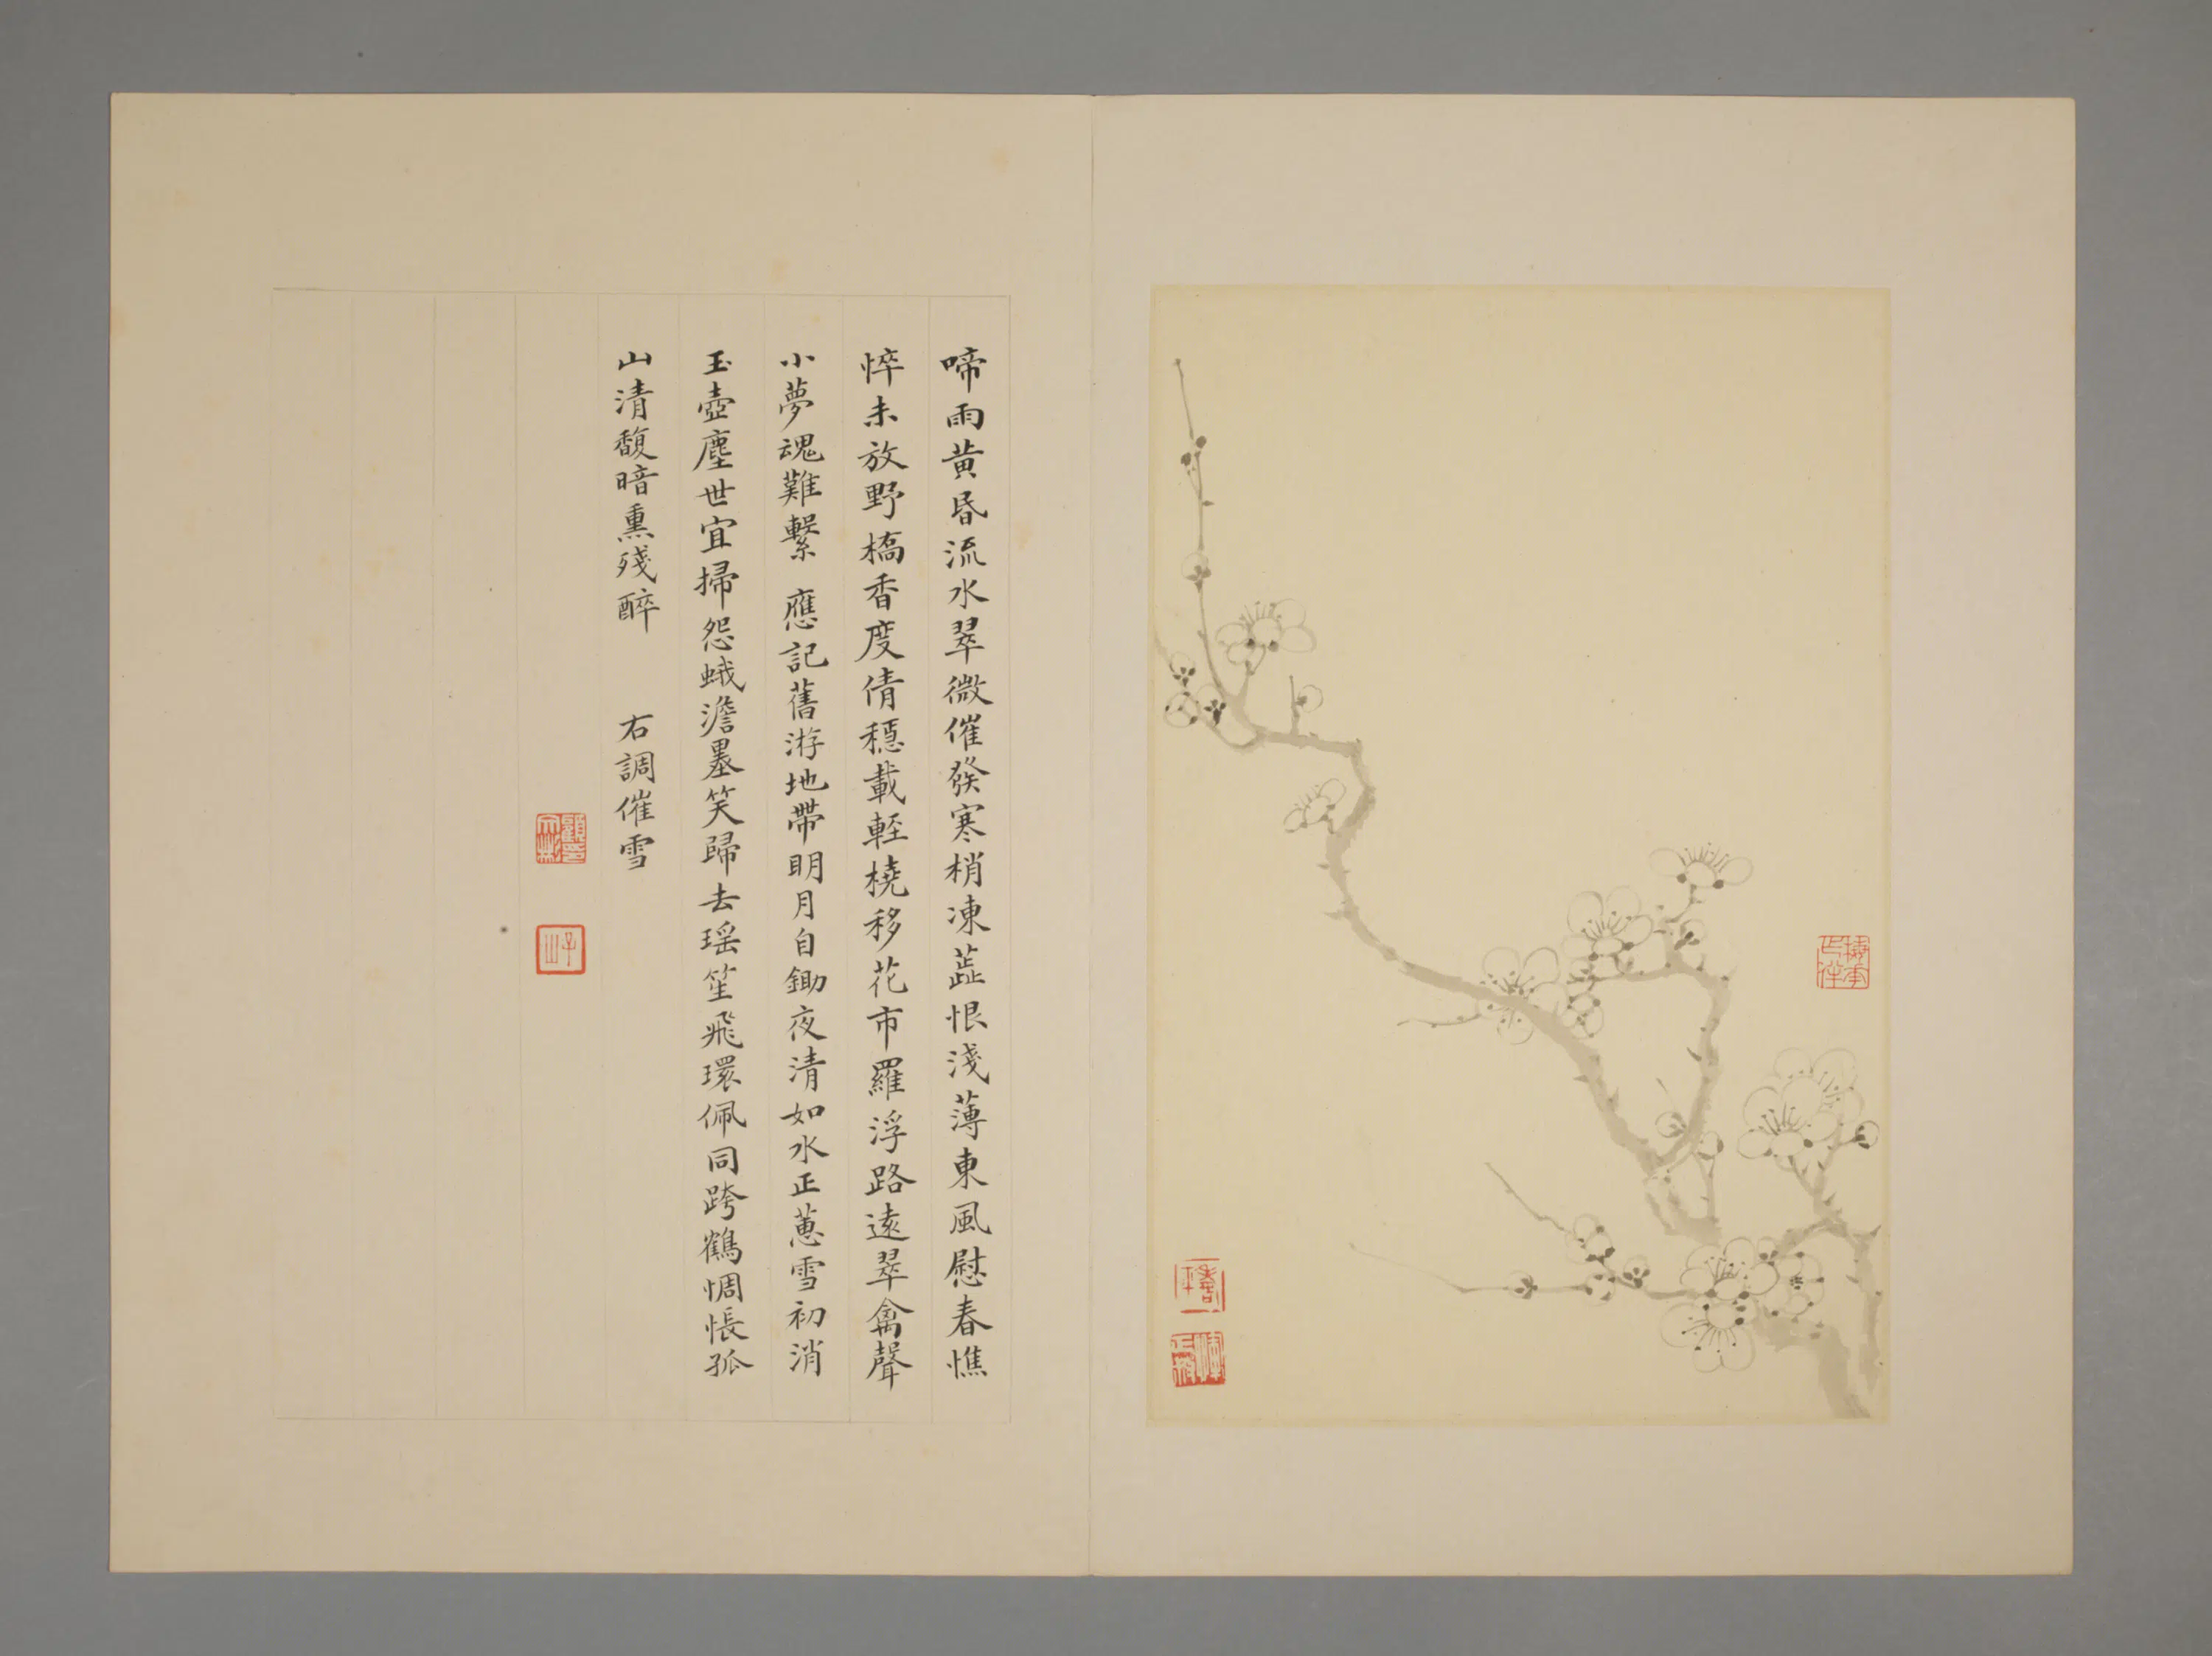 啼雨黄昏流水翠微催發寒梢凍蕋恨淺薄東風慰春憔
悴未放野橋香度倩穩載輕橈移花市羅浮路遠翠禽聲
小夢魂難繫 應記舊游地帶明月自鋤夜清如水正蕙雪初消
玉壺塵世宜掃怨蛾澹墨笑歸去瑶笙飛環佩同跨鶴惆悵孤
山清馥暗熏殘醉 右調催雪
子山